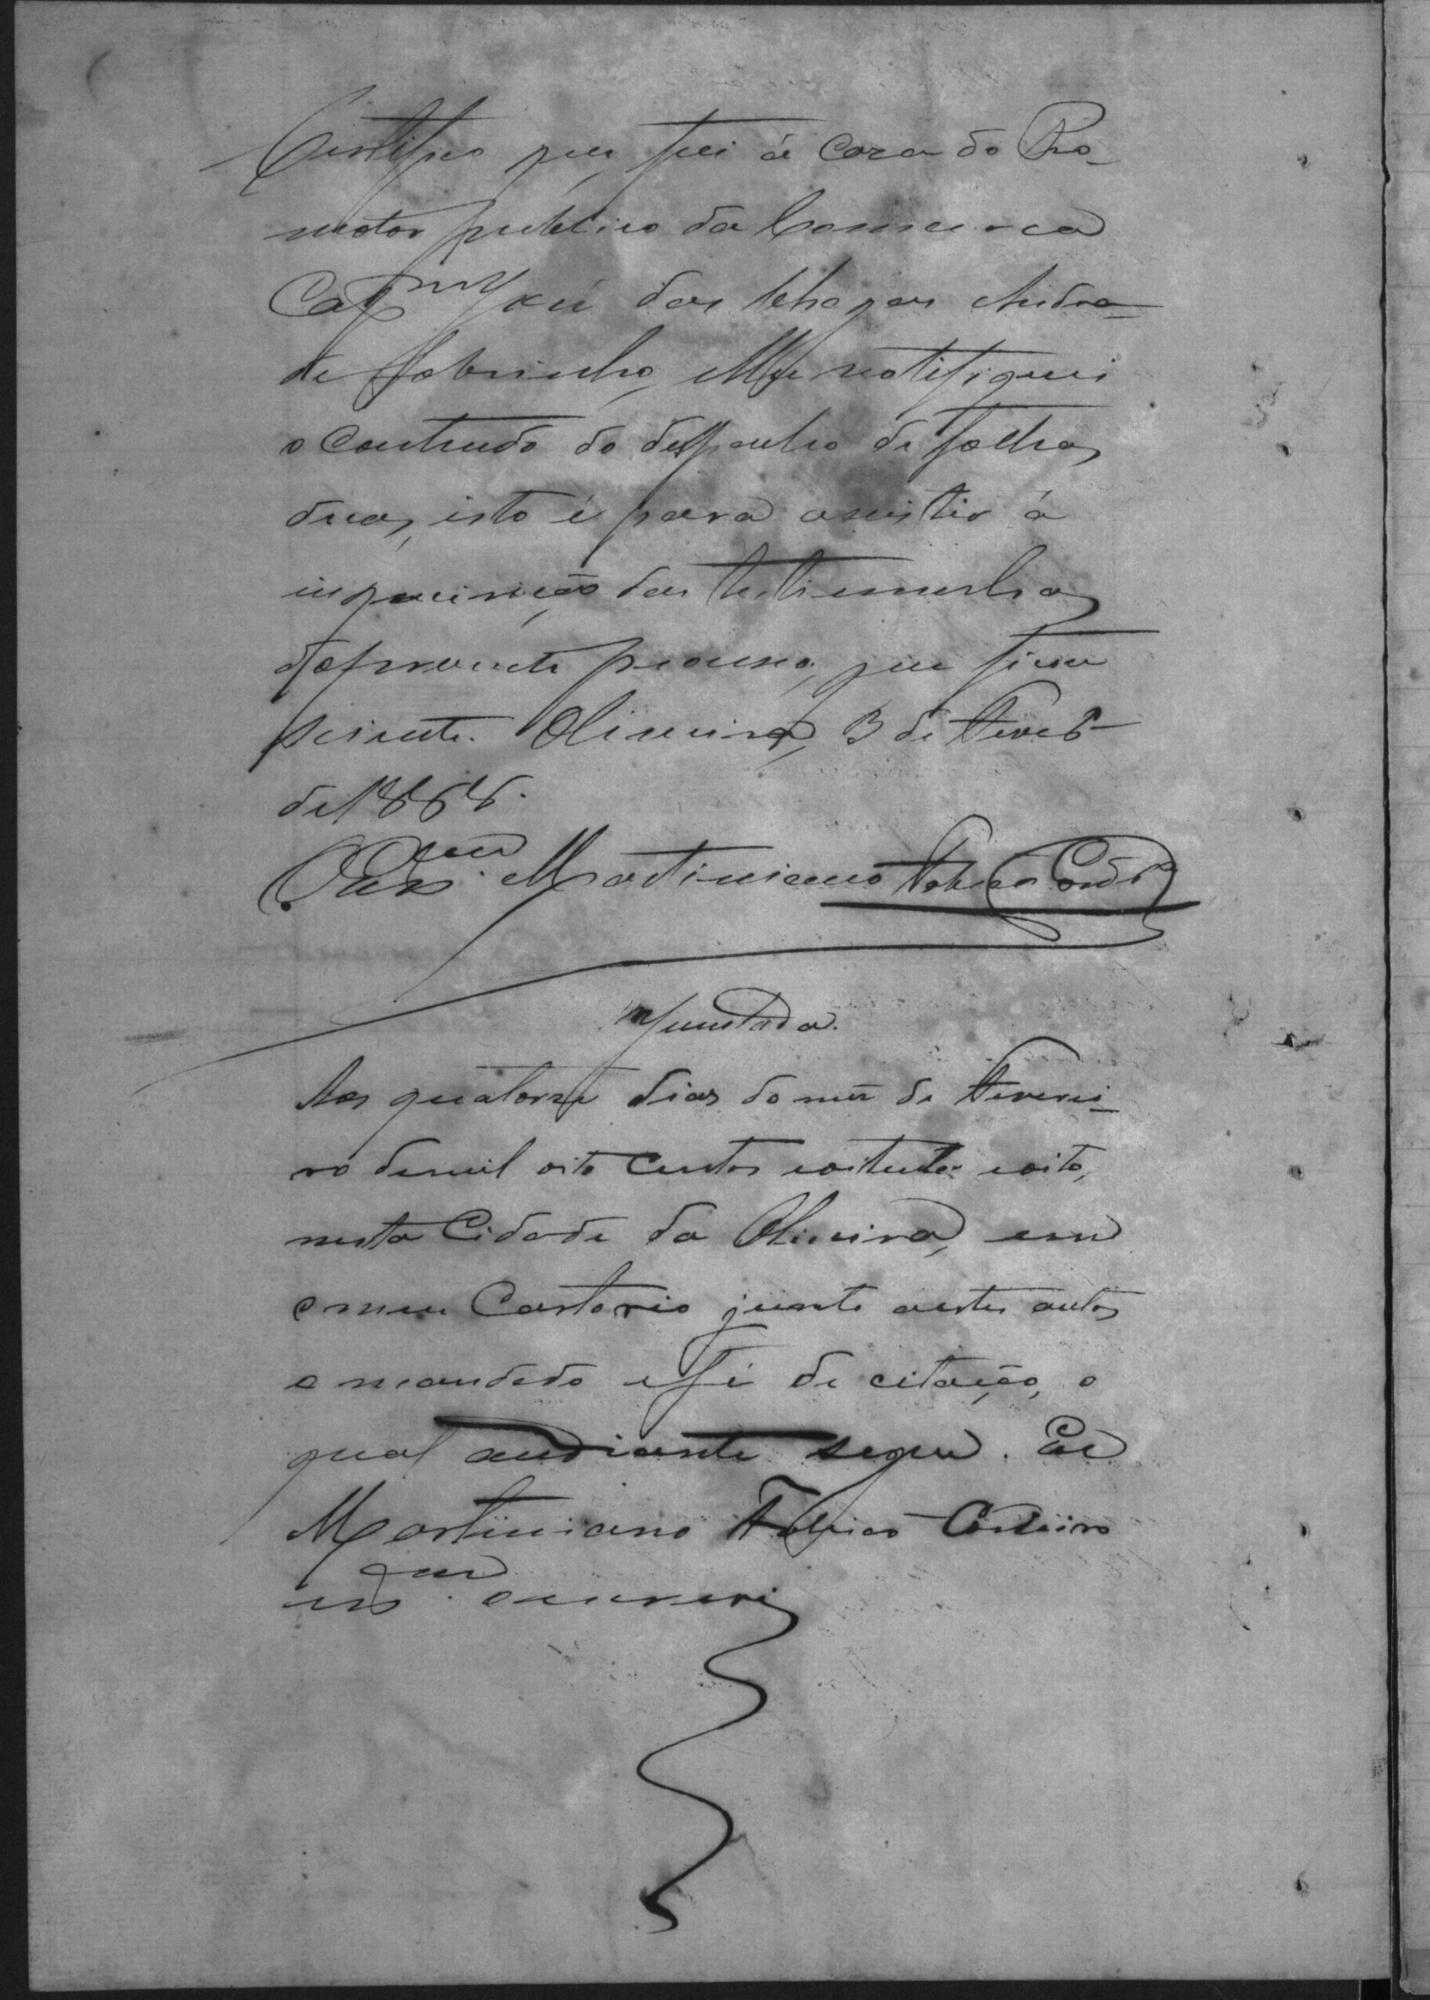 Certifico que fui á caza do Pro-
motor publico da Comarca
Cap.m José das Chagas Andra-
de Sobrinho, e lhe notifiquei
o contheudo do despacho de folhas
duas, isto é para assistir á
inquirição das testemunhas
do presente processo, que ficou
sciente. Oliveira, 3 de Fever.º
de 1888.
O Es.am Martiniano Fabico Cord.ro
Juntada.
Aos quatorze dias do mez de Feverei-
ro de mil oito centos e oitenta e oito,
nesta Cidade da Oliveira, em
o meu Cartorio junto a estes autos
o mandado e fé de citação, o
qual audiante segue. Eu
Martiniano Cordeiro
es.am escrevi